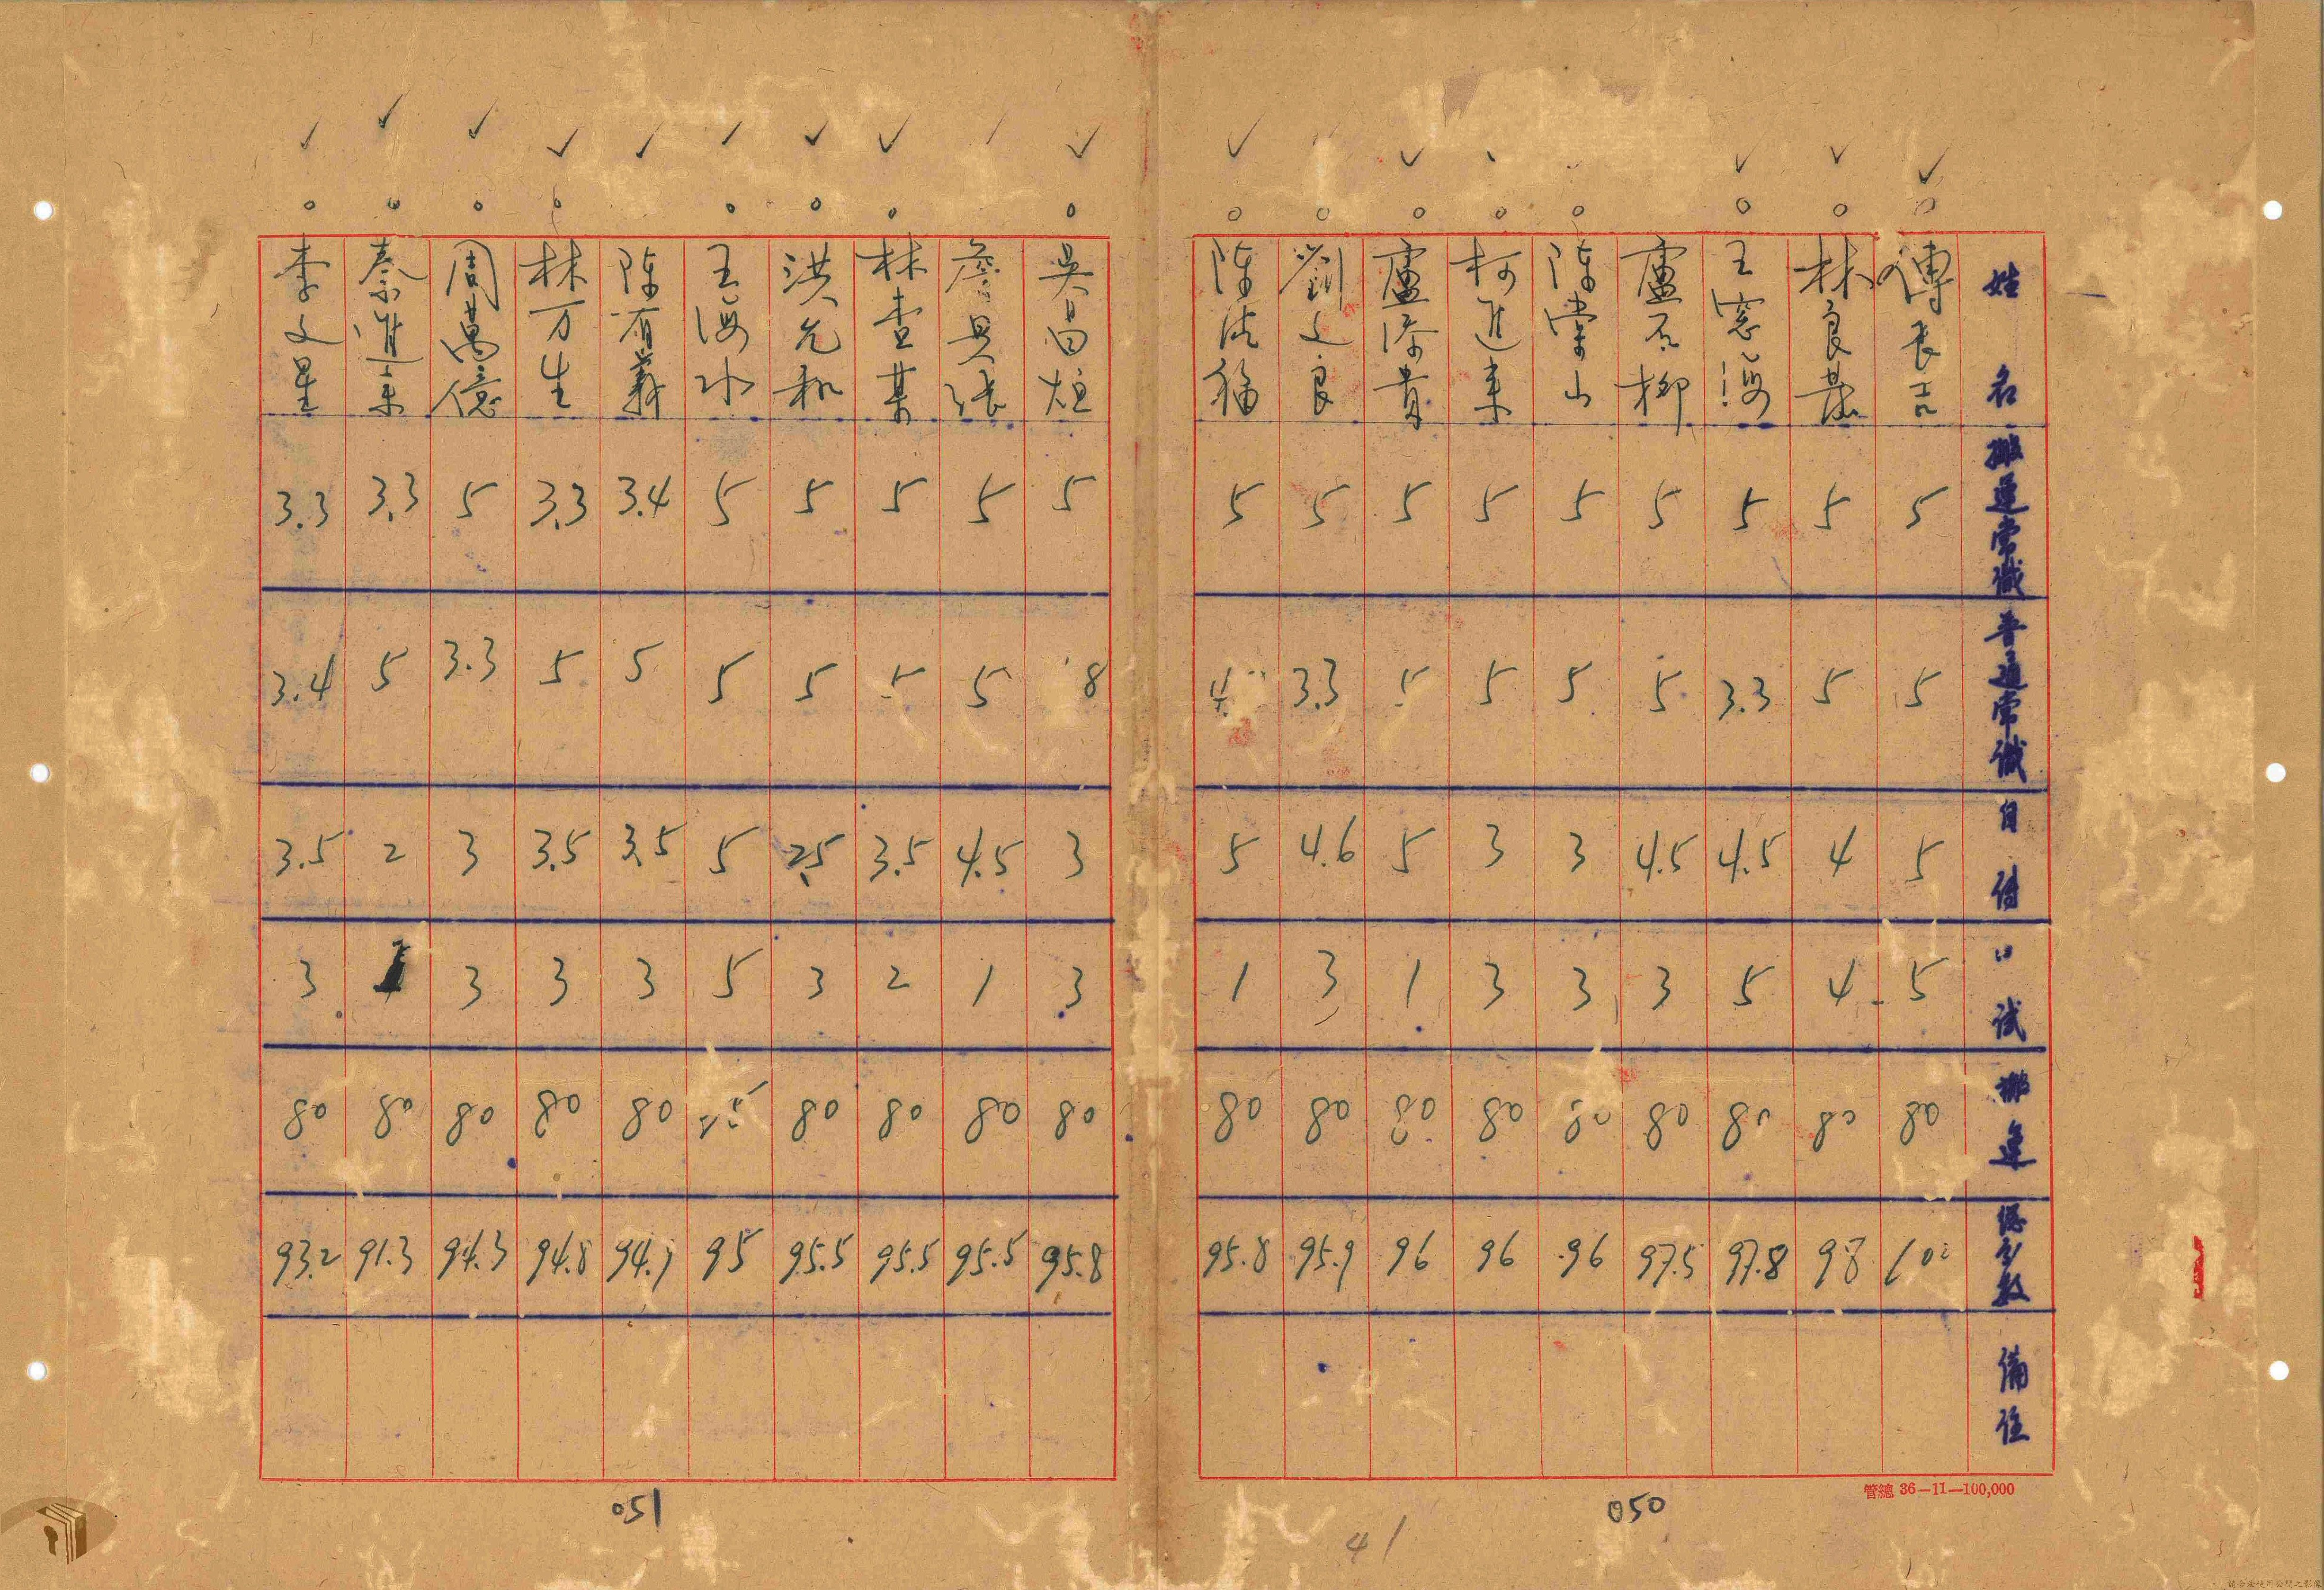 姓名 搬運常識 普通常識 自傳 口試 搬運 總分數 備註
傅長吉 5 5 5 5 80 100
林良基 5 5 4 4 80 98
王窓海 5 3.3 4.5 5 80 97.8
盧石柳 5 5 4.5 3 80 97.5
陳崇山 5 5 3 3 80 96
柯進来 5 5 3 3 80 96
盧添貴 5 5 5 1 80 96
劉文良 5 3.3 4.6 3 80 95.9
陳法福 5 4. 5 1 80 95.8
吳昌烜 5 8 3 3 80 95.8
詹具張 5 5 4.5 1 80 95.5
林查某 5 5 3.5 2 80 95.5
洪允和 5 5 2.5 3 80 95.5
王海水 5 5 5 5 95
陳有義 3.4 5 3.5 3 80 94.9
林万生 3.3 5 3.5 3 80 94.8
周萬億 5 3.3 3 3 80 94.3
秦進来 3.3 5 2 1 80 91.3
李文星 3.3 3.4 3.5 3 80 93.2
管總 36—11—100,000
050
051
41